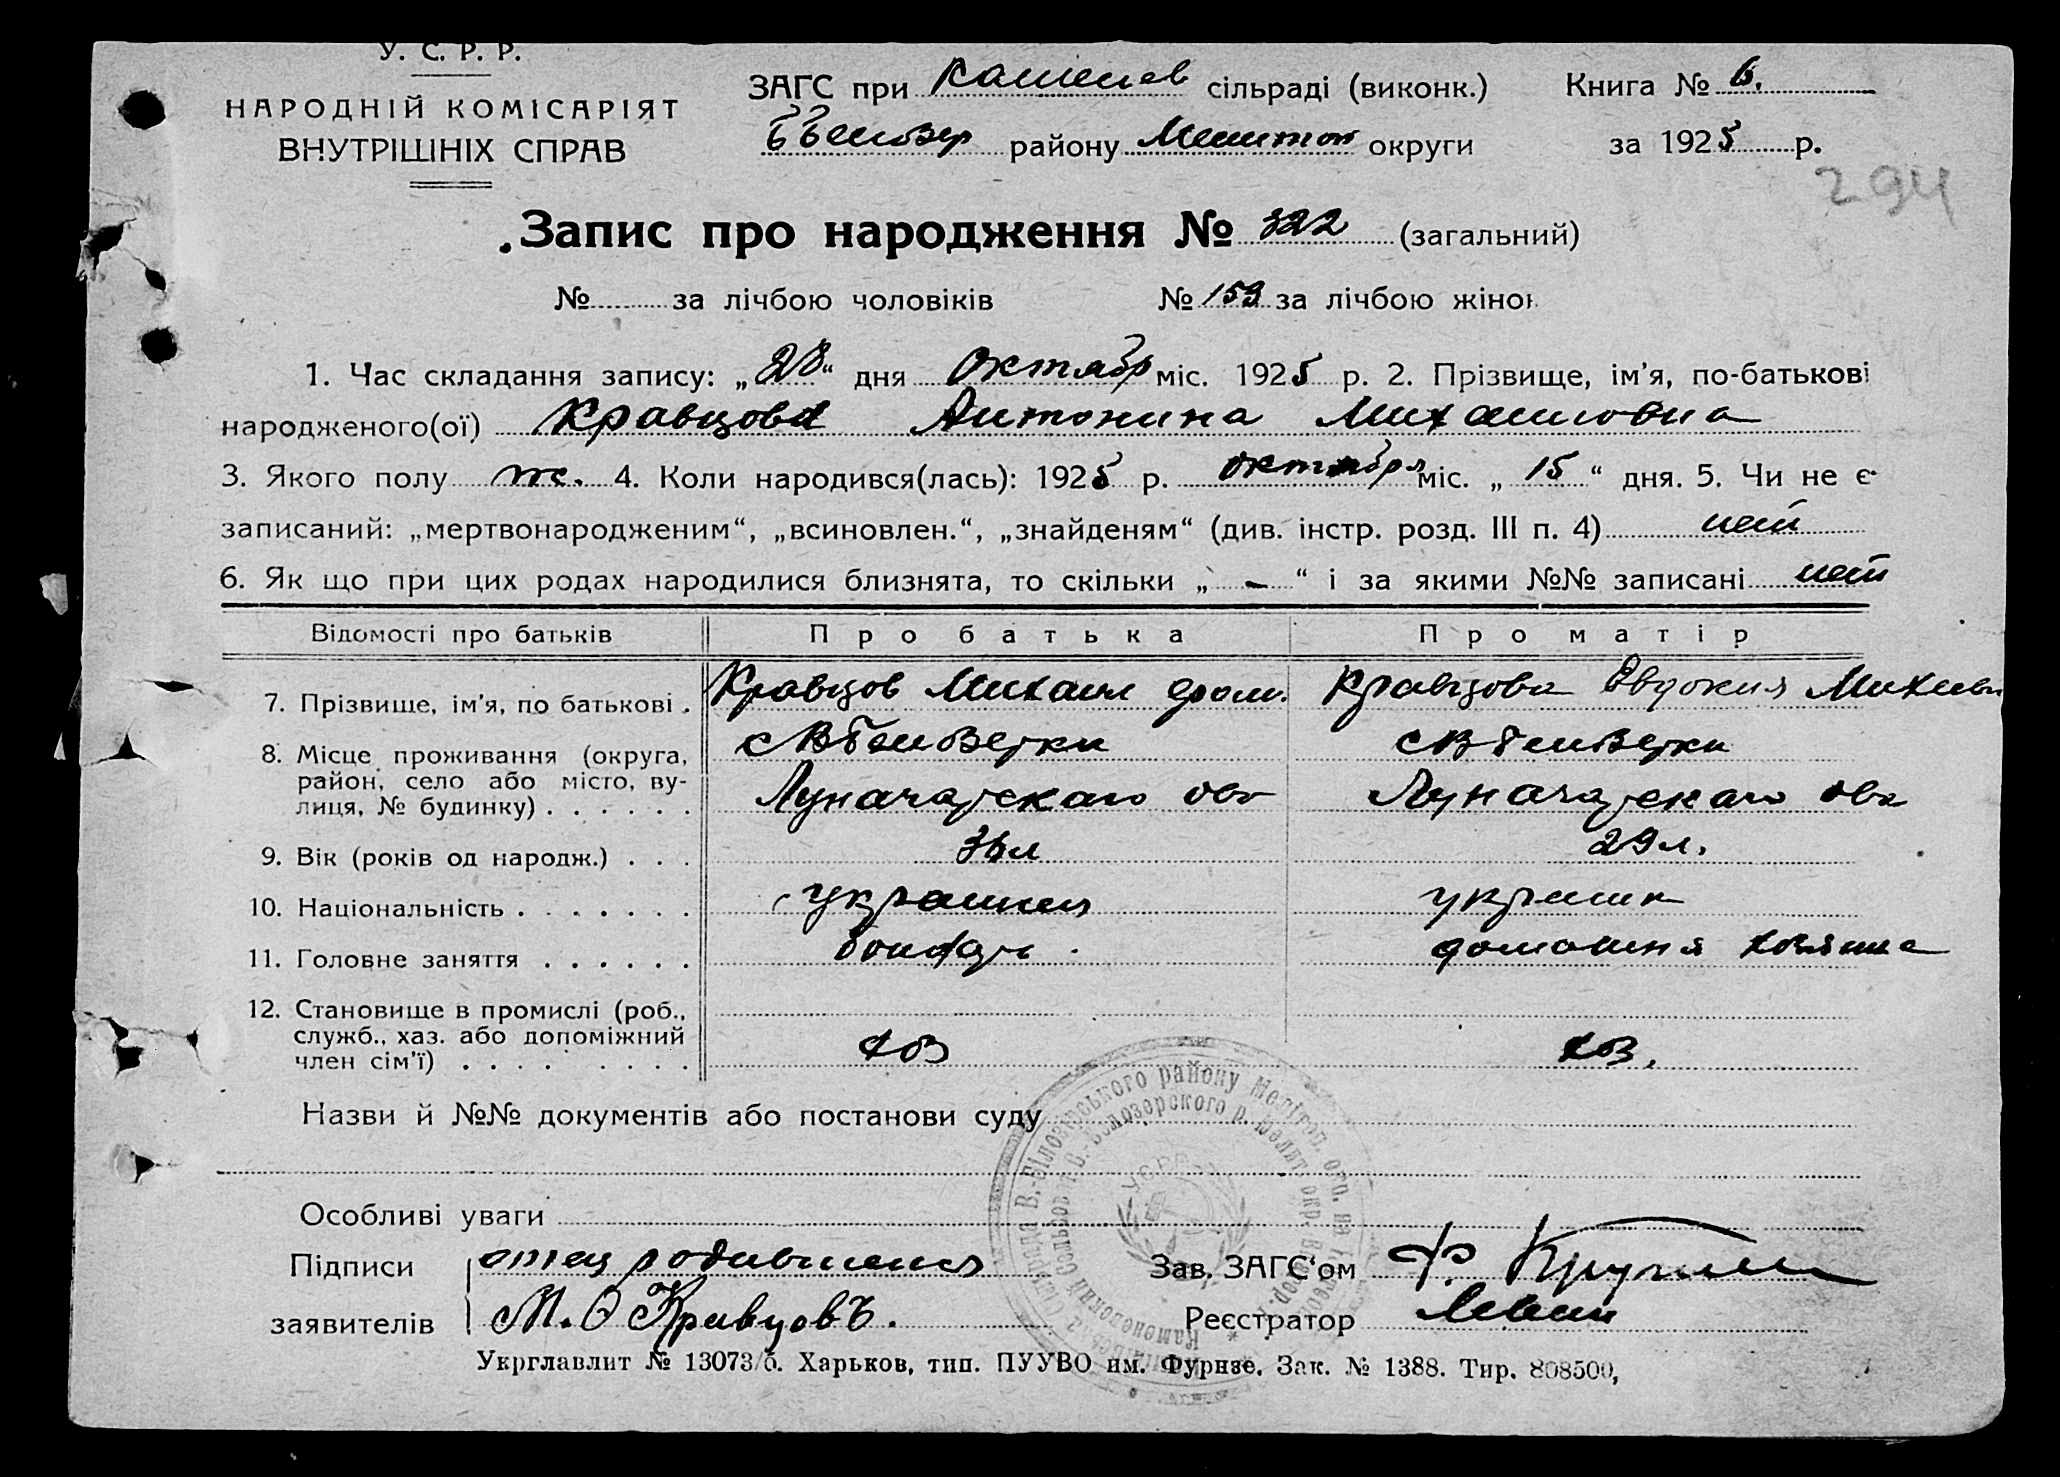 У. С. Р. Р.
НАРОДНІЙ КОМІСАРІЯТ
ВНУТРІШНІХ СПРАВ
ЗАГС при сільраді (виконк.)
району Мелитоп округи
Книга № 6.
за 1925 р.
294
Запис про народження № 322 (загальний)
№ за лічбою чоловіків № 159 за лічбою жінок
1. Час складання запису: „28“ дня Октябр міс. 1925 р. 2. Прізвище, ім'я, по-батькові
народженого(ої) Кравцова Антонина Михайловна
3. Якого полу ж. 4. Коли народився(лась): 1925 р. октября міс. „15“ дня. 5. Чи не є
записаний: „мертвонародженим“, „всиновлен.“, „знайденям“ (див. інстр. розд. III п. 4) нет
6. Як що при цих родах народилися близнята, то скільки „-“ і за якими №№ записані нет
Відомості про батьків Про батька Про матір
7. Прізвище, ім'я, по батькові . Кравцов Михаил Кравцова Евдокия
8. Місце проживання (округа,
район, село або місто, ву-
лиця, № будинку) . . . . . . Луначарскаго Луначарскаго
9. Вік (років од народж.) . . . 29 л.
10. Національність . . . . . . .
11. Головне заняття . . . . . . бондарь
12. Становище в промислі (роб.,
служб., хаз. або допоміжний
член сім'ї) . . . . . . . . хоз хоз.
Назви й №№ документів або постанови суду
Особливі уваги
Підписи отец родившейся Зав. ЗАГС'ом
заявителів М. Ф Кравцовъ. Реєстратор
Укрглавлит № 13073/б. Харьков, тип. ПУУВО им. Фурнзе. Зак. № 1388. Тир. 808500,